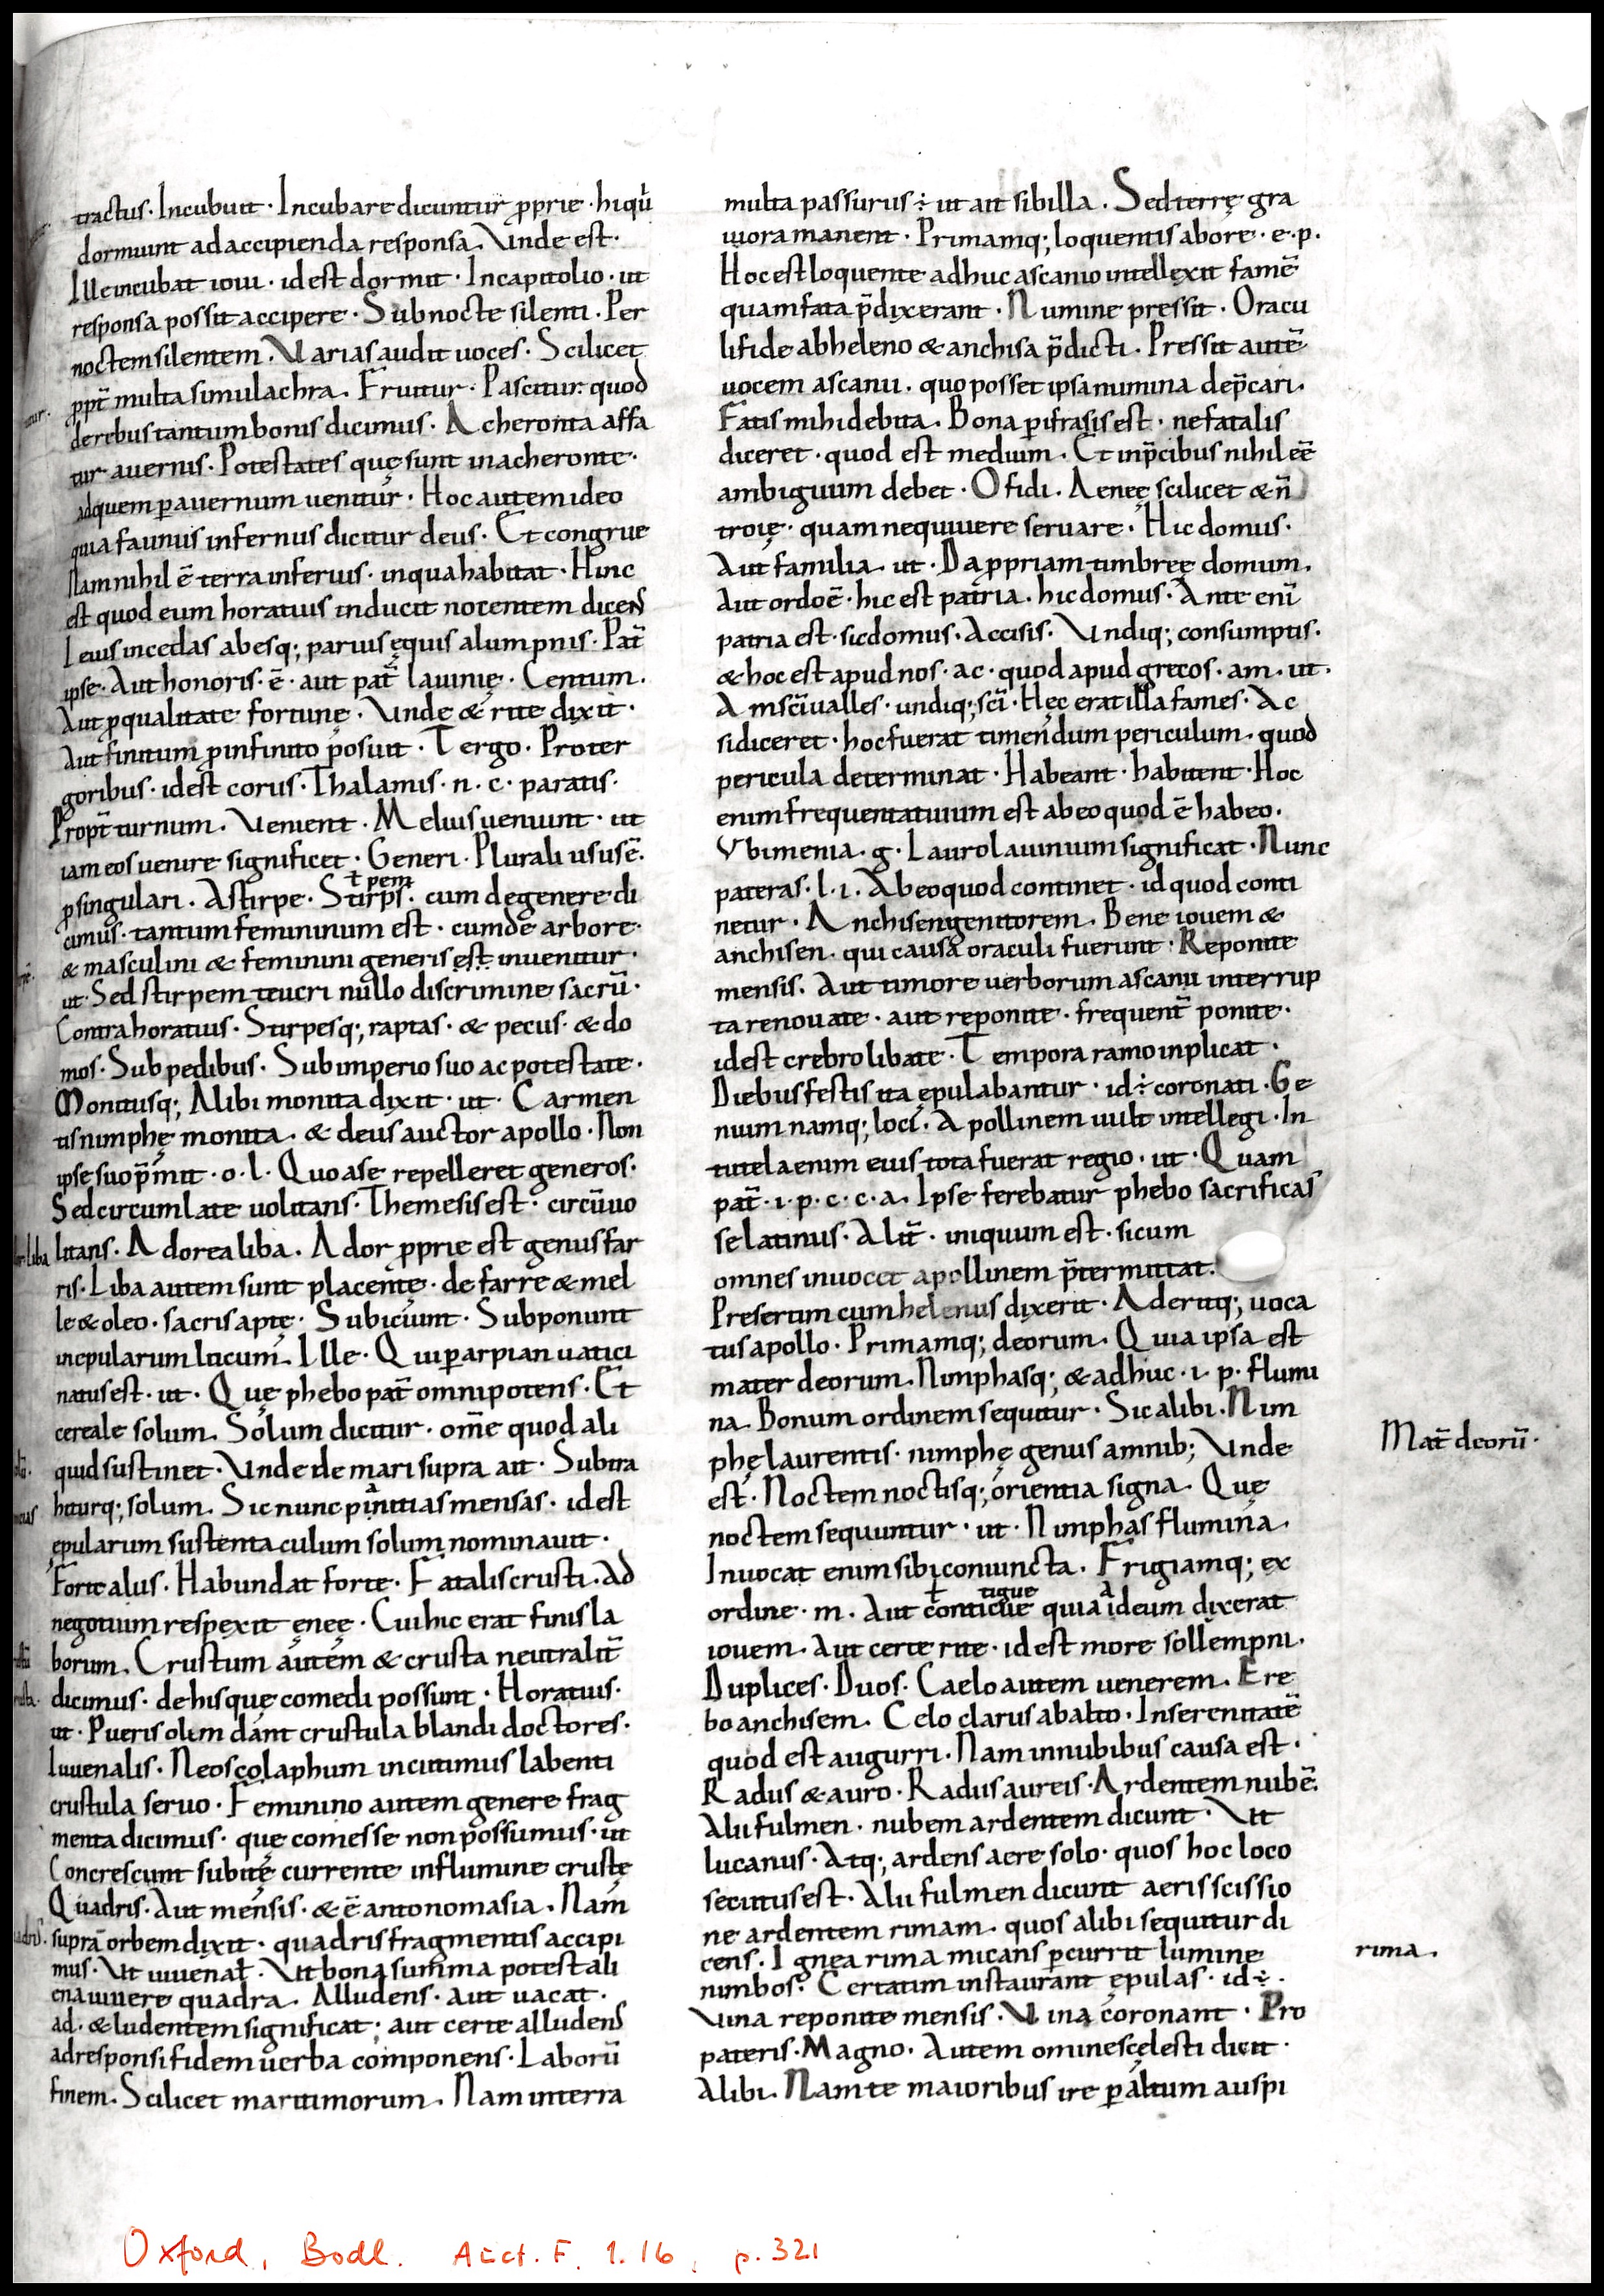 tractus· Incubuit· Incubare dicuntur ꝓprie· hi qu̇
dormiunt ad accipienda responsa. Unde est·
Ille incubat ioui· id est dormit· In capitolio· ut
responsa possit accipere· Sub nocte silenti· Per
noctem silentem. Uarias audit uoces· Scilicet
ꝓpt̄ multa simulachra. Fruitur· Pascitur· quod
de rebus tantum bonis dicimus· Acheronta affa
tur auernis· Potestates quę sunt in acheronte·
ad quem ꝑ auernum uenitur· Hoc autem ideo
quia faunus infernus dicitur deus· Et congrue
Nam nihil ē terra inferius· in qua habitat· Hinc
est quod eum horatius inducit nocentem dicens
Leuis incedas abesq; paruis ęquis alumpnis· Pat̄
ipse· Aut honoris· ē· aut pat̄ lauinię· Centum.
Aut ꝓ qualitate fortunę· Unde & rite dixit·
Aut finitum ꝓ infinito posuit· Tergo· Proter
goribus· id est corus· Thalamis· n· c· paratis·
Propt̄ turnum. Uenient· Melius ueniunt· ut
iam eos uenire significet· Generi· Plurali usus ē·
ł pem
ꝓ singulari. A stirpe· Stirps· cum de genere di
cimus· tantum femininum est· cum de arbore·
& masculini & feminini generis est inuenitur·
ut· Sed stirpem teucri nullo discrimine sacrū·
Contra horatius· Stirpesq; raptas· & pecus· & do
mos· Sub pedibus· Sub imperio suo ac potestate·
Monitusq; Alibi monita dixit· ut· Carmen
tis nimphę monita. & deus auctor apollo· Non
ipse suo p̄mit· o· l· Quo a se repelleret generos·
Sed circum late uolitans· Themesis est· circūuo
litans· Adorea liba. Ador ꝓprie est genus far
ris· Liba autem sunt placentę· de farre & mel
le & oleo· sacris aptę· Subiciunt· Subponunt
in epularum locum. Ille· Qui ꝑ arpian uatici
natus est· ut· Quę phebo pat̄ omnipotens· Et
cereale solum. Solum dicitur· om̄e quod ali
quid sustinet· Unde de mari supra ait· Subtra
hiturq; solum. Sic nunc pinitias mensas· id est
ępularum sustentaculum solum nominauit·
Forte alus· Habundat forte· Fatalis crusti. Ad
negotium respexit ęnęę· Cui hic erat finis la
borum. Crustum autem & crusta neutralit̄
dicimus· de his quę comedi possunt· Horatius·
ut· Pueris olim dant crustula blandi doctores·
Iuuenalis· Neos colaphum incutimus labenti
crustula seruo· Feminino autem genere frag
menta dicimus· quę comesse non possumus· ut
Concrescunt subitę currente in flumine crustę
Quadris· Aut mensis· & ē antonomasia. Nam
supra orbem dixit· quadris fragmentis accipi
mus· Ut iuuenaƚ· Ut bona summa potest ali
ena uiuere quadra. Alludens· Aut uacat·
ad· & ludentem significat; aut certe alludens
ad responsi fidem uerba componens· Laborū
finem· Scilicet maritimorum. Nam in terra
multa passurus ÷ ut ait sibilla. Sed terrę gra
uiora manent· Primamq; loquentis ab ore· e·p·
Hoc est loquente adhuc ascanio intellexit famē
quam fata p̄dixerant· Numine pressit· Oracu
li fide ab heleno & anchisa p̄dicti. Pressit autē
uocem ascanii. quo posset ipsa numina dep̄cari.
Fatis mihi debita. Bona ꝑifrasis est· ne fatalis
diceret· quod est medium. Et in p̄cibus nihil eē
ambiguum debet· O fidi. Aenęę scilicet & n̄
troię· quam nequiuere seruare. Hic domus·
Aut familia. ut· Da ꝓpriam timbreę domum.
Aut ordo ē· hic est patria. hic domus· Ante enī
patria est· sic domus. Accisis· Undiq; consumptis·
& hoc est apud nos· ac· quod apud grecos· am· ut·
Amsc̄i ualles· undiq; sc̄i· Hęc erat illa fames· Ac
si diceret· hoc fuerat timendum periculum. quod
pericula determinat· Habeant· habitent· Hoc
enim frequentatiuum est ab eo quod ē habeo.
Ubi menia· g· Laurolauinium significat· Nunc
pateras· l· i· Ab eo quod continet· id quod conti
netur· Anchisen genitorem. Bene iouem &
anchisen· qui causa oraculi fuerunt· Reponite
mensis· Aut timore uerborum ascanii interrup
ta renouate· aut reponite· frequent̄ ponite·
id est crebro libate· Tempora ramo inplicat·
Diebus festis ita ępulabantur· id ÷ coronati· Ge
nium namq; loci· Apollinem uult intellegi· In
tutela enim eius tota fuerat regio· ut· Quam
pat̄· i· p· c· c· a. Ipse ferebatur phebo sacrificas
se latinus· Alit̄· iniquum est· si cum
omnes inuocet apollinem p̄termittat·
Presertim cum helenus dixerit· Aderitq; uoca
tus apollo· Primamq; deorum. Quia ipsa est
mater deorum. Nimphasq; & adhuc· i· p· flumi
na. Bonum ordinem sequitur· Sic alibi· Nim
phę laurentis· nimphę genus amnib; Unde
est· Noctem noctisq; orientia signa. Quę
noctem sequuntur· ut· Nimphas flumina·
Inuocat enim sibi coniuncta. Frigiamq; ex
ł tigue a
ordine· m. Aut conticue quia ideum dixerat
iouem. Aut certe rite· id est more sollempni·
Duplices· Duos· Caelo autem uenerem. Ere
bo anchisem. Celo clarus ab alto· In serenitatē
quod est augurri· Nam in nubibus causa est·
Radiis & auro· Radiis aureis· Ardentem nubē.
Alii fulmen· nubem ardentem dicunt· Ut
lucanus· Atq; ardens aere solo· quos hoc loco
secutus est· Alii fulmen dicunt aeris scissio
ne ardentem rimam· quos alibi sequitur di
cens· Ignea rima micans ꝑcurrit lumine
nimbos· Certatim instaurant ępulas· id ÷·
Uina reponite mensis· Uina coronant· Pro
pateris· Magno· Autem omine scęlesti dicit·
Alibi· Nam te maioribus ire ꝑ altum auspi
Mat̄ deorū·
rima.
Oxford, Bodl. Auct. F. 1.16, p. 321